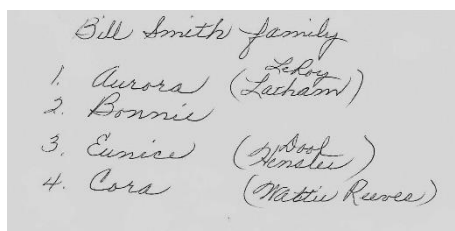 Bill Smith family
1. Aurora (LeRoy Latham)
2. Bonnie
3. Eunice (Doof
4. Cora (Wattie Reeves)